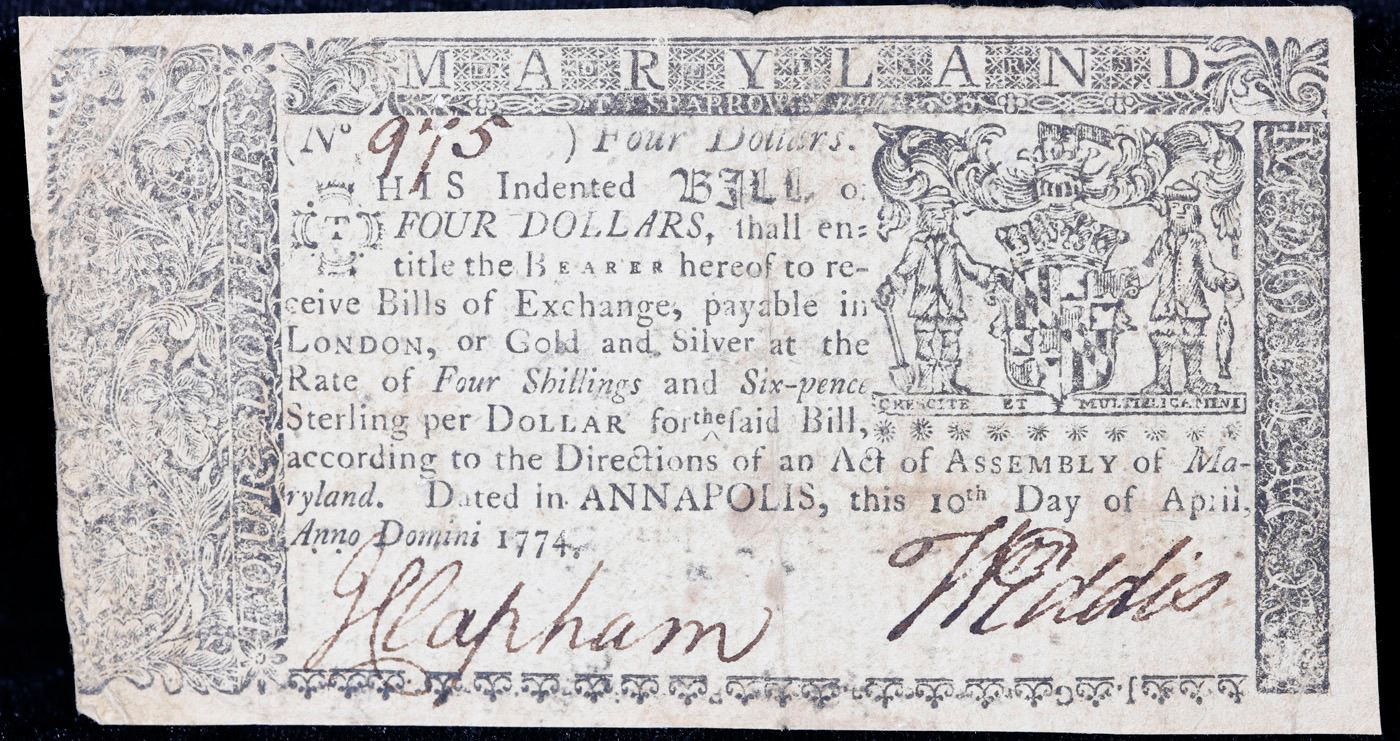 MARYLAND
T. SPARROW
FOUR DOLLARS
(No 975 ) Four Dollars.
THIS Indented BILL of
FOUR DOLLARS, ſhall en=
title the BEARER hereof to re-
ceive Bills of Exchange, payable in
LONDON, or Gold and Silver at the
Rate of Four Shillings and Six-pence
Sterling per DOLLAR for the ſaid Bill,
according to the Directions of an Act of ASSEMBLY of Ma-
ryland. Dated in ANNAPOLIS, this 10th Day of April,
Anno Domini 1774.
CRESCITE ET MULTIPLICAMINI
JClapham
WEddis